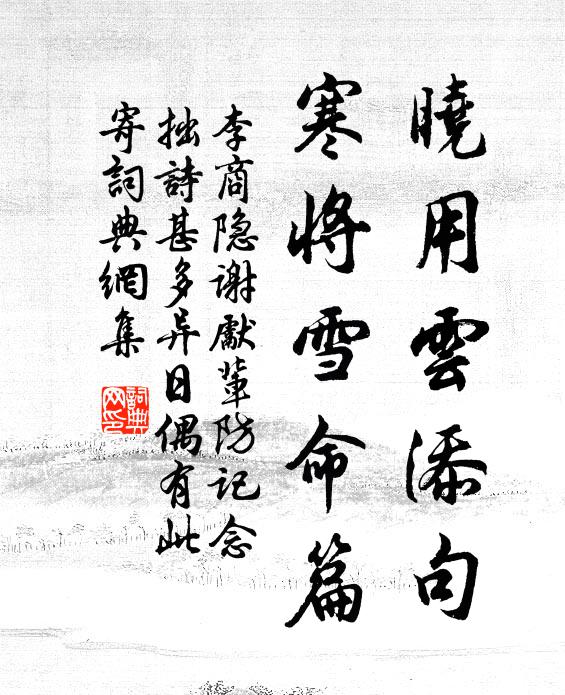 曉用雲添句
寒將雪命篇
李商隐谢獻輩防记念
拙詩甚多异日偶有此
寄詞典網集
詞典网印